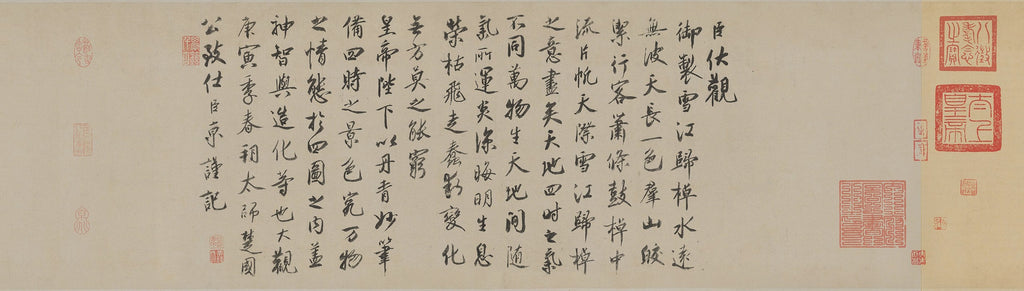 八徵耄念之寶
太上皇帝
臣伏觀
御製雪江歸棹水遠
無波天長一色群山皎
潔行客蕭條鼓棹中
流片帆天際雪江歸棹
之意盡矣天地四時之氣
不同萬物生天地間隨
氣所運炎涼晦明生息
榮枯飛走蠢動變化
無方莫之能窮
皇帝陛下以丹青妙筆
備四時之景色究萬物
之情態於四圖之內蓋
神智與造化等也大觀
庚寅季春朔太師楚國
公致仕臣京謹記